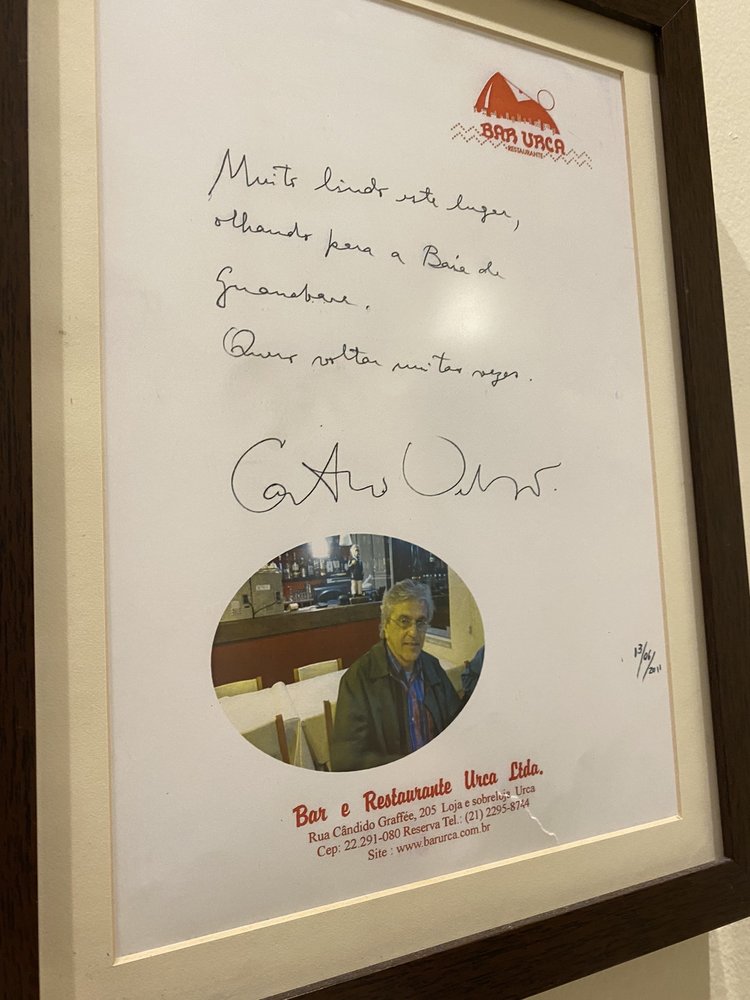 BAR URCA
RESTAURANTE
Muito lindo este lugar,
olhando para a Baía de
Guanabara.
Quero voltar muitas vezes.
Caetano Veloso.
13/06/2011
Bar e Restaurante Urca Ltda.
Rua Cândido Graffée, 205 Loja e sobreloja Urca
Cep: 22.291-080 Reserva Tel.: (21) 2295-8744
Site : www.barurca.com.br